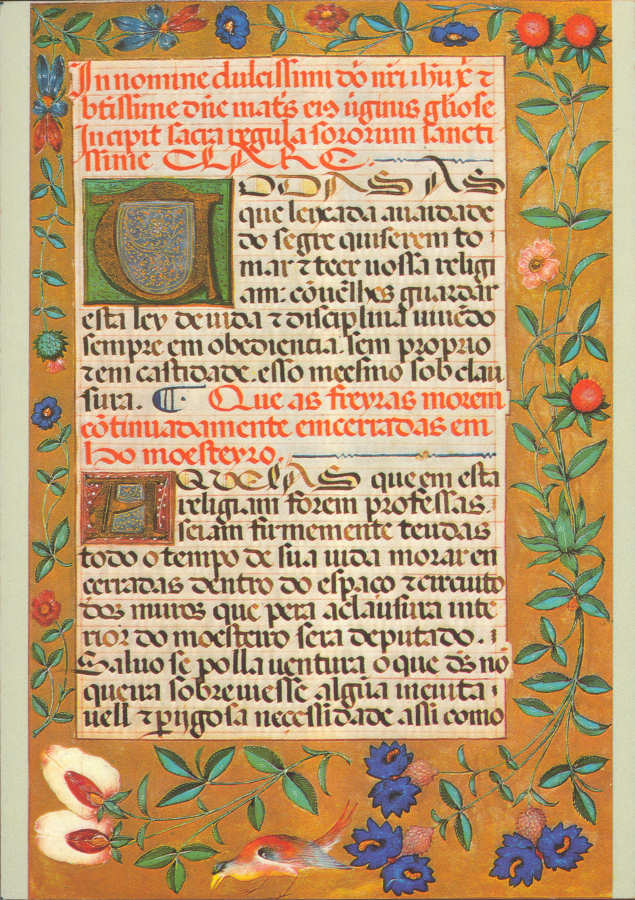 In nomine dulcissimi dñi nr̃i ihũ xp̃i ⁊
btissime dñe mat̃s ei9 ũginis gl̃iose
Incipit sacra regula sororum sancti
ssime CLARE.
TODAS AS
que leixada auaidade
do segre quiserem to
mar ⁊ teer uossa religi
am: cõuẽlhes guardar
esta ley de uida ⁊ disciplina uiuẽdo
sempre em obediencia. sem proprio
⁊ em castidade. esso meesmo sob clau
sura. ¶ Que as freyras morem
cõtinuadamente emcerradas em
ho moesteyro.
AQVELAS que em esta
religiam forem professas.
seiam firmemente teudas
todo o tempo de sua uida morar en
cerradas dentro do espaço ⁊ circuito
dos muros que pera a clausura inte
rior do moesteiro sera deputado.
Saluo se polla uentura o que dѕ nõ
queira sobreuiesse algũa ineuita
uell ⁊ p̃rigosa necessidade assi como